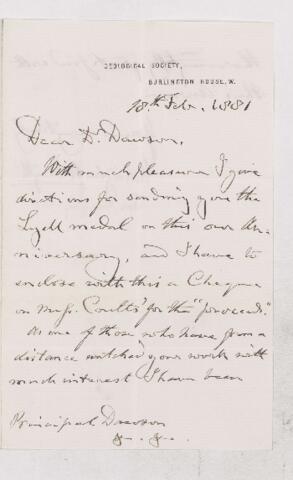 GEOLOGICAL SOCIETY,
BURLINGTON HOUSE, W.
18th Feb. 1881
Dear Dr Dawson,
With much pleasure I give
directions for sending you the
Lyell medal on this our An-
niversary, and I have to
enclose with this a Cheque
on Messrs. Coutts' for the "proceeds".
As one of those who have from a
distance watched your work with
much interest I have been
Principal Dawson
&c. &c.